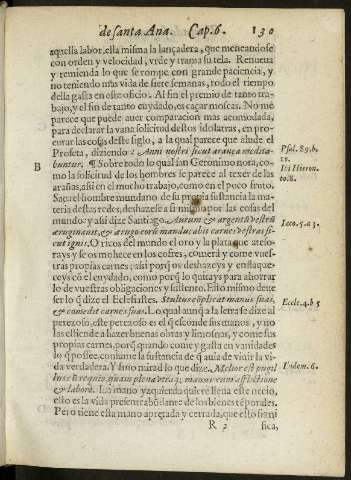 de santa Ana. Cap. 6. 130
aquella labor, ella misma la lançadera, que meneandose
con orden y velocidad, vrde y trama su tela. Renueua
y remienda lo que se rompe con grande paciencia, y
no teniendo mas vida de siete semanas, todo el tiempo
della gasta en este oficio. Al fin el premio de tanto tra-
bajo, y el fin de tanto cuydado, es caçar moscas. No me
parece que puede auer comparacion mas acomodada,
para declarar la vana solicitud destos idolatras, en pro-
curar las cosas deste siglo, a la qual parece que alude el
Profeta, diziendo: Anni nostri sicut aranea medita-
buntur. ¶ Sobre todo lo qual san Geronimo nota, co-
mo la solicitud de los hombres se parece al texer de las
arañas, assi en el mucho trabajo, como en el poco fruto.
Saca el hombre mundano de su propia sustancia la ma-
teria destas redes, deshazese a si mismo por las cosas del
mundo: y assi dize Santiago. Aurum & argentũ vestrũ
æruginauit, & ærugo eorũ manducabit carnes vestras si-
cut ignis. O ricos del mundo el oro y la plata que ateso-
rays y se os mohece en los cofres, comerà y come vues-
tras propias carnes: assi porq̃ os deshazeys y enflaque-
ceys cõ el cuydado, como porq̃ lo quitays para ahorrar
lo de vuestras obligaciones y sustento. Esto mismo deue
ser lo q̃ dize el Eclesiastes. Stultus cõplicat manus suas,
& comedit carnes suas. Lo qual aunq̃ a la letra se dize al
perezoso, este perezoso es el q̃ esconde sus manos, y no
las estiende a hazer buenas obras y limosnas, y come sus
propias carnes, porq̃ quando come y gasta en vanidades
lo q̃ possee, consume la sustancia de q̃ auia de viuir la vi-
da verdadera. Y sino mirad lo que dize. Melior est pugil
lus cũ requie, quam plena vtraq; manus cum afflictione
& labore. La mano yzquierda quiere llena este necio,
esto es la vida presente abũdante de los bienes tẽporales.
Pero tiene esta mano apretada y cerrada, que esto signi
R 2 fica,
B
Psal. 89. b.
Ibi Hieron.
to. 8.
Iaco. 5. a 3.
Eccle. 4. b 5
Ibidem. 6.